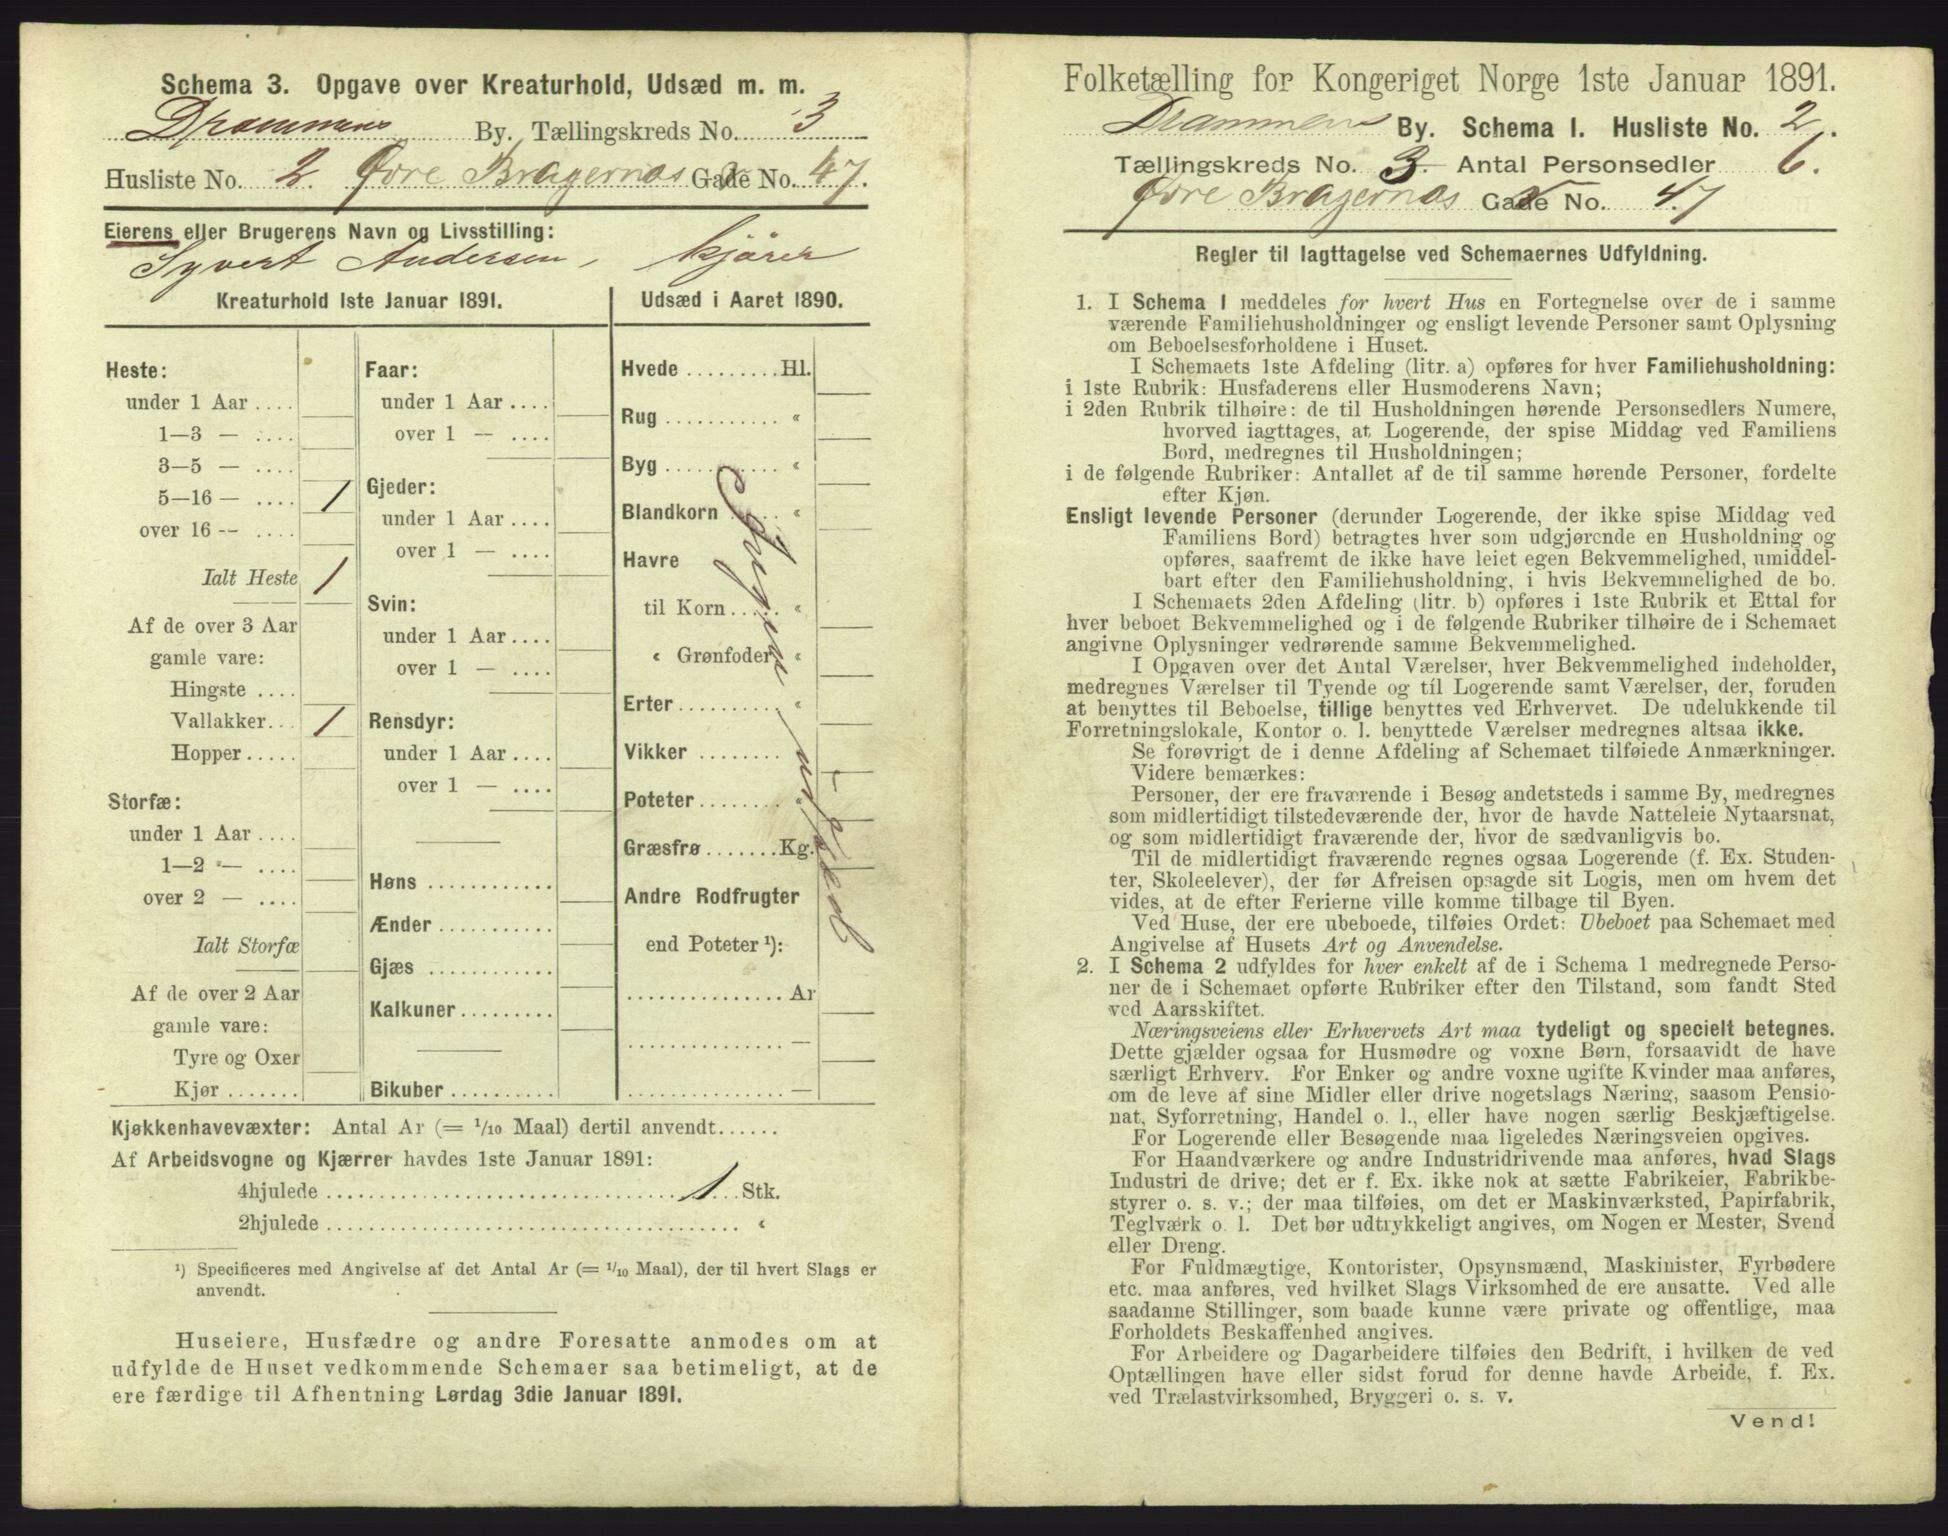 Schema 3. Opgave over Kreaturhold, Udsæd m. m.
Drammens By. Tællingskreds No. 3
Husliste No. 2. Øvre Bragernæs Gade No. 47.
Eierens eller Brugerens Navn og Livsstilling:
Syvert Andersen, kjører
Kreaturhold 1ste Januar 1891.
Heste:
under 1 Aar ....
1—3 — ....
3—5 — ....
5—16 — .... 1
over 16 -- ....
Ialt Heste 1
Af de over 3 Aar
gamle vare:
Hingste ....
Vallakker... 1
Hopper.....
Storfæ:
under 1 Aar ....
1—2 — ....
over 2 — ....
Ialt Storfæ
Af de over 2 Aar
gamle vare:
Tyre og Oxer
Kjør.......
Faar:
under 1 Aar ....
over 1 — ....
Gjeder:
under 1 Aar ....
over 1 — ....
Svin:
under 1 Aar ....
over 1 — ....
Rensdyr:
under 1 Aar ....
over 1 — ....
Høns ............
Ænder ...........
Gjæs ............
Kalkuner.........
Bikuber ..........
Udsæd i Aaret 1890.
Hvede ......... Hl.
Rug ........... «
Byg ........... «
Blandkorn ..... «
Havre
til Korn ..... «
« Grønfoder «
Erter.......... «
Vikker ........
Poteter........ «
Græsfrø ....... Kg.
Andre Rodfrugter
end Poteter ¹):
............... Ar
............... —
............... —
Ingen Udsæd
Kjøkkenhavevæxter: Antal Ar (= 1/10 Maal) dertil anvendt......
Af Arbeidsvogne og Kjærrer havdes 1ste Januar 1891:
4hjulede .................................... 1 Stk.
2hjulede ........................................ «
¹) Specificeres med Angivelse af det Antal Ar (= 1/10 Maal), der til hvert Slags er
anvendt.
Huseiere, Husfædre og andre Foresatte anmodes om at
udfylde de Huset vedkommende Schemaer saa betimeligt, at de
ere færdige til Afhentning Lørdag 3die Januar 1891.
Folketælling for Kongeriget Norge 1ste Januar 1891.
Drammens By. Schema I. Husliste No. 2.
Tællingskreds No. 3. Antal Personsedler 6.
Øvre Bragernæs Gade No. 47
Regler til Iagttagelse ved Schemaernes Udfyldning.
1. I Schema 1 meddeles for hvert Hus en Fortegnelse over de i samme
værende Familiehusholdninger og ensligt levende Personer samt Oplysning
om Beboelsesforholdene i Huset.
I Schemaets 1ste Afdeling (litr. a) opføres for hver Familiehusholdning:
i 1ste Rubrik: Husfaderens eller Husmoderens Navn;
i 2den Rubrik tilhøire: de til Husholdningen hørende Personsedlers Numere,
hvorved iagttages, at Logerende, der spise Middag ved Familiens
Bord, medregnes til Husholdningen;
i de følgende Rubriker: Antallet af de til samme hørende Personer, fordelte
efter Kjøn.
Ensligt levende Personer (derunder Logerende, der ikke spise Middag ved
Familiens Bord) betragtes hver som udgjørende en Husholdning og
opføres, saafremt de ikke have leiet egen Bekvemmelighed, umiddel-
bart efter den Familiehusholdning, i hvis Bekvemmelighed de bo.
I Schemaets 2den Afdeling (litr. b) opføres i 1ste Rubrik et Ettal for
hver beboet Bekvemmelighed og i de følgende Rubriker tilhøire de i Schemaet
angivne Oplysninger vedrørende samme Bekvemmelighed.
I Opgaven over det Antal Værelser, hver Bekvemmelighed indeholder,
medregnes Værelser til Tyende og til Logerende samt Værelser, der, foruden
at benyttes til Beboelse, tillige benyttes ved Erhvervet. De udelukkende til
Forretningslokale, Kontor o. l. benyttede Værelser medregnes altsaa ikke.
Se forøvrigt de i denne Afdeling af Schemaet tilføiede Anmærkninger.
Videre bemærkes:
Personer, der ere fraværende i Besøg andetsteds i samme By, medregnes
som midlertidigt tilstedeværende der, hvor de havde Natteleie Nytaarsnat,
og som midlertidigt fraværende der, hvor de sædvanligvis bo.
Til de midlertidigt fraværende regnes ogsaa Logerende (f. Ex. Studen-
ter, Skoleelever), der før Afreisen opsagde sit Logis, men om hvem det
vides, at de efter Ferierne ville komme tilbage til Byen.
Ved Huse, der ere ubeboede, tilføies Ordet: Ubeboet paa Schemaet med
Angivelse af Husets Art og Anvendelse.
2. I Schema 2 udfyldes for hver enkelt af de i Schema 1 medregnede Perso-
ner de i Schemaet opførte Rubriker efter den Tilstand, som fandt Sted
ved Aarsskiftet.
Næringsveiens eller Erhvervets Art maa tydeligt og specielt betegnes.
Dette gjælder ogsaa for Husmødre og voxne Børn, forsaavidt de have
særligt Erhverv. For Enker og andre voxne ugifte Kvinder maa anføres,
om de leve af sine Midler eller drive nogetslags Næring, saasom Pensio-
nat, Syforretning, Handel o. l., eller have nogen særlig Beskjæftigelse.
For Logerende eller Besøgende maa ligeledes Næringsveien opgives.
For Haandværkere og andre Industridrivende maa anføres, hvad Slags
Industri de drive; det er f. Ex. ikke nok at sætte Fabrikeier, Fabrikbe-
styrer o. s. v.; der maa tilføies, om det er Maskinværksted, Papirfabrik,
Teglværk o. l. Det bør udtrykkeligt angives, om Nogen er Mester, Svend
eller Dreng.
For Fuldmægtige, Kontorister, Opsynsmænd, Maskinister, Fyrbødere
etc. maa anføres, ved hvilket Slags Virksomhed de ere ansatte. Ved alle
saadanne Stillinger, som baade kunne være private og offentlige, maa
Forholdets Beskaffenhed angives.
For Arbeidere og Dagarbeidere tilføies den Bedrift, i hvilken de ved
Optællingen have eller sidst forud for denne havde Arbeide, f. Ex.
ved Trælastvirksomhed, Bryggeri o. s. v.
Vend!